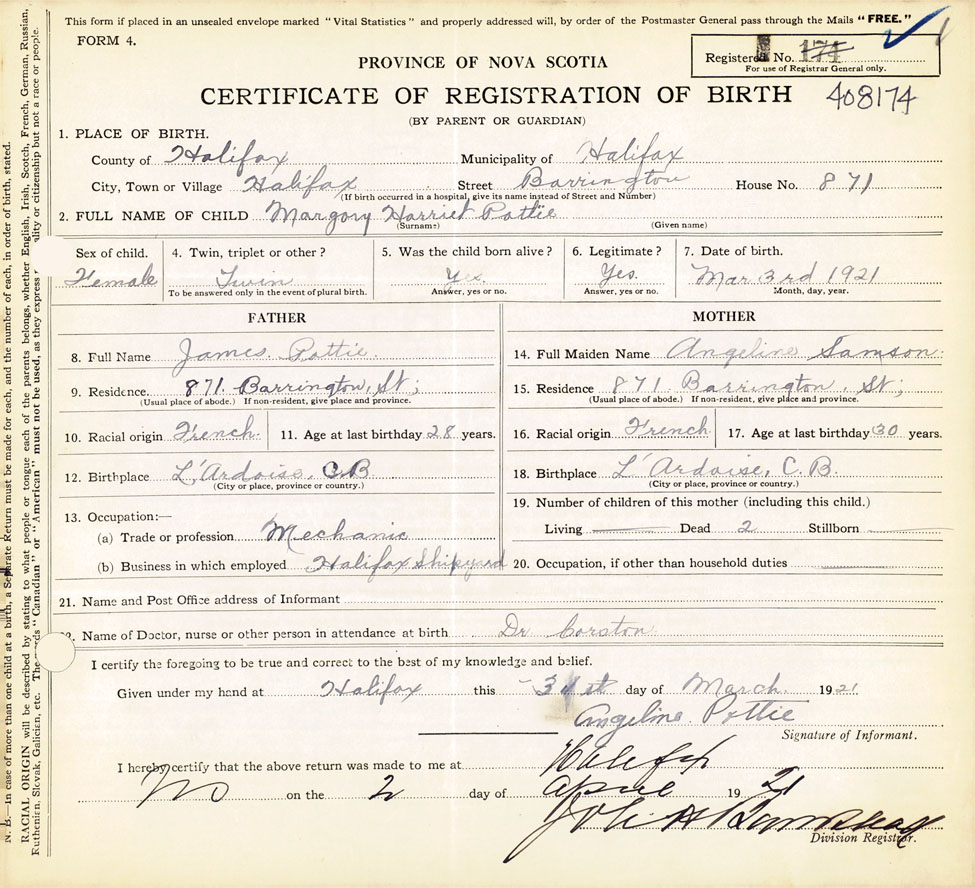 This form if placed in an unsealed envelope marked "Vital Statistics" and properly addressed will, by order of the Postmaster General pass through the Mails "FREE."
FORM 4.
Registered No. 174
For use of Registrar General only.
PROVINCE OF NOVA SCOTIA
CERTIFICATE OF REGISTRATION OF BIRTH 408174
(BY PARENT OR GUARDIAN)
1. PLACE OF BIRTH.
County of Halifax Municipality of Halifax
City, Town or Village Halifax Street Barrington House No. 871
(If birth occurred in a hospital, give its name instead of Street and Number)
2. FULL NAME OF CHILD Margory Harriet Pottie
(Surname) (Given name)
Sex of child. 4. Twin, triplet or other? 5. Was the child born alive? 6. Legitimate? 7. Date of birth.
Female Twin Yes. Yes. Mar 3rd 1921
To be answered only in the event of plural birth. Answer, yes or no. Answer, yes or no. Month, day, year.
FATHER
8. Full Name James Pottie.
9. Residence. 871. Barrington, St;
(Usual place of abode.) If non-resident, give place and province.
10. Racial origin French. 11. Age at last birthday 28 years.
12. Birthplace L'Ardoise, C B
(City or place, province or country.)
13. Occupation:—
(a) Trade or profession Mechanic
(b) Business in which employed Halifax Shipyard
MOTHER
14. Full Maiden Name Angeline Samson.
15. Residence 871 Barrington, St;
(Usual place of abode.) If non-resident, give place and province.
16. Racial origin French 17. Age at last birthday 30 years.
18. Birthplace L'Ardoise, C. B.
(City or place, province or country.)
19. Number of children of this mother (including this child.)
Living Dead 2 Stillborn
20. Occupation, if other than household duties
21. Name and Post Office address of Informant
22. Name of Doctor, nurse or other person in attendance at birth Dr Corston
I certify the foregoing to be true and correct to the best of my knowledge and belief.
Given under my hand at Halifax this 31st day of March. 1921
Angeline Pottie
Signature of Informant.
I hereby certify that the above return was made to me at Halifax
NS on the 2 day of April 1921
Division Registrar.
N. B.—In case of more than one child at a birth, a Separate Return must be made for each, and the number of each, in order of birth, stated.
RACIAL ORIGIN will be described by stating to what people or tongue each of the parents belongs, whether English, Irish, Scotch, French, German, Russian,
Ruthenian, Slovak, Galician, etc. The words "Canadian" or "American" must not be used, as they express nationality or citizenship but not a race or people.